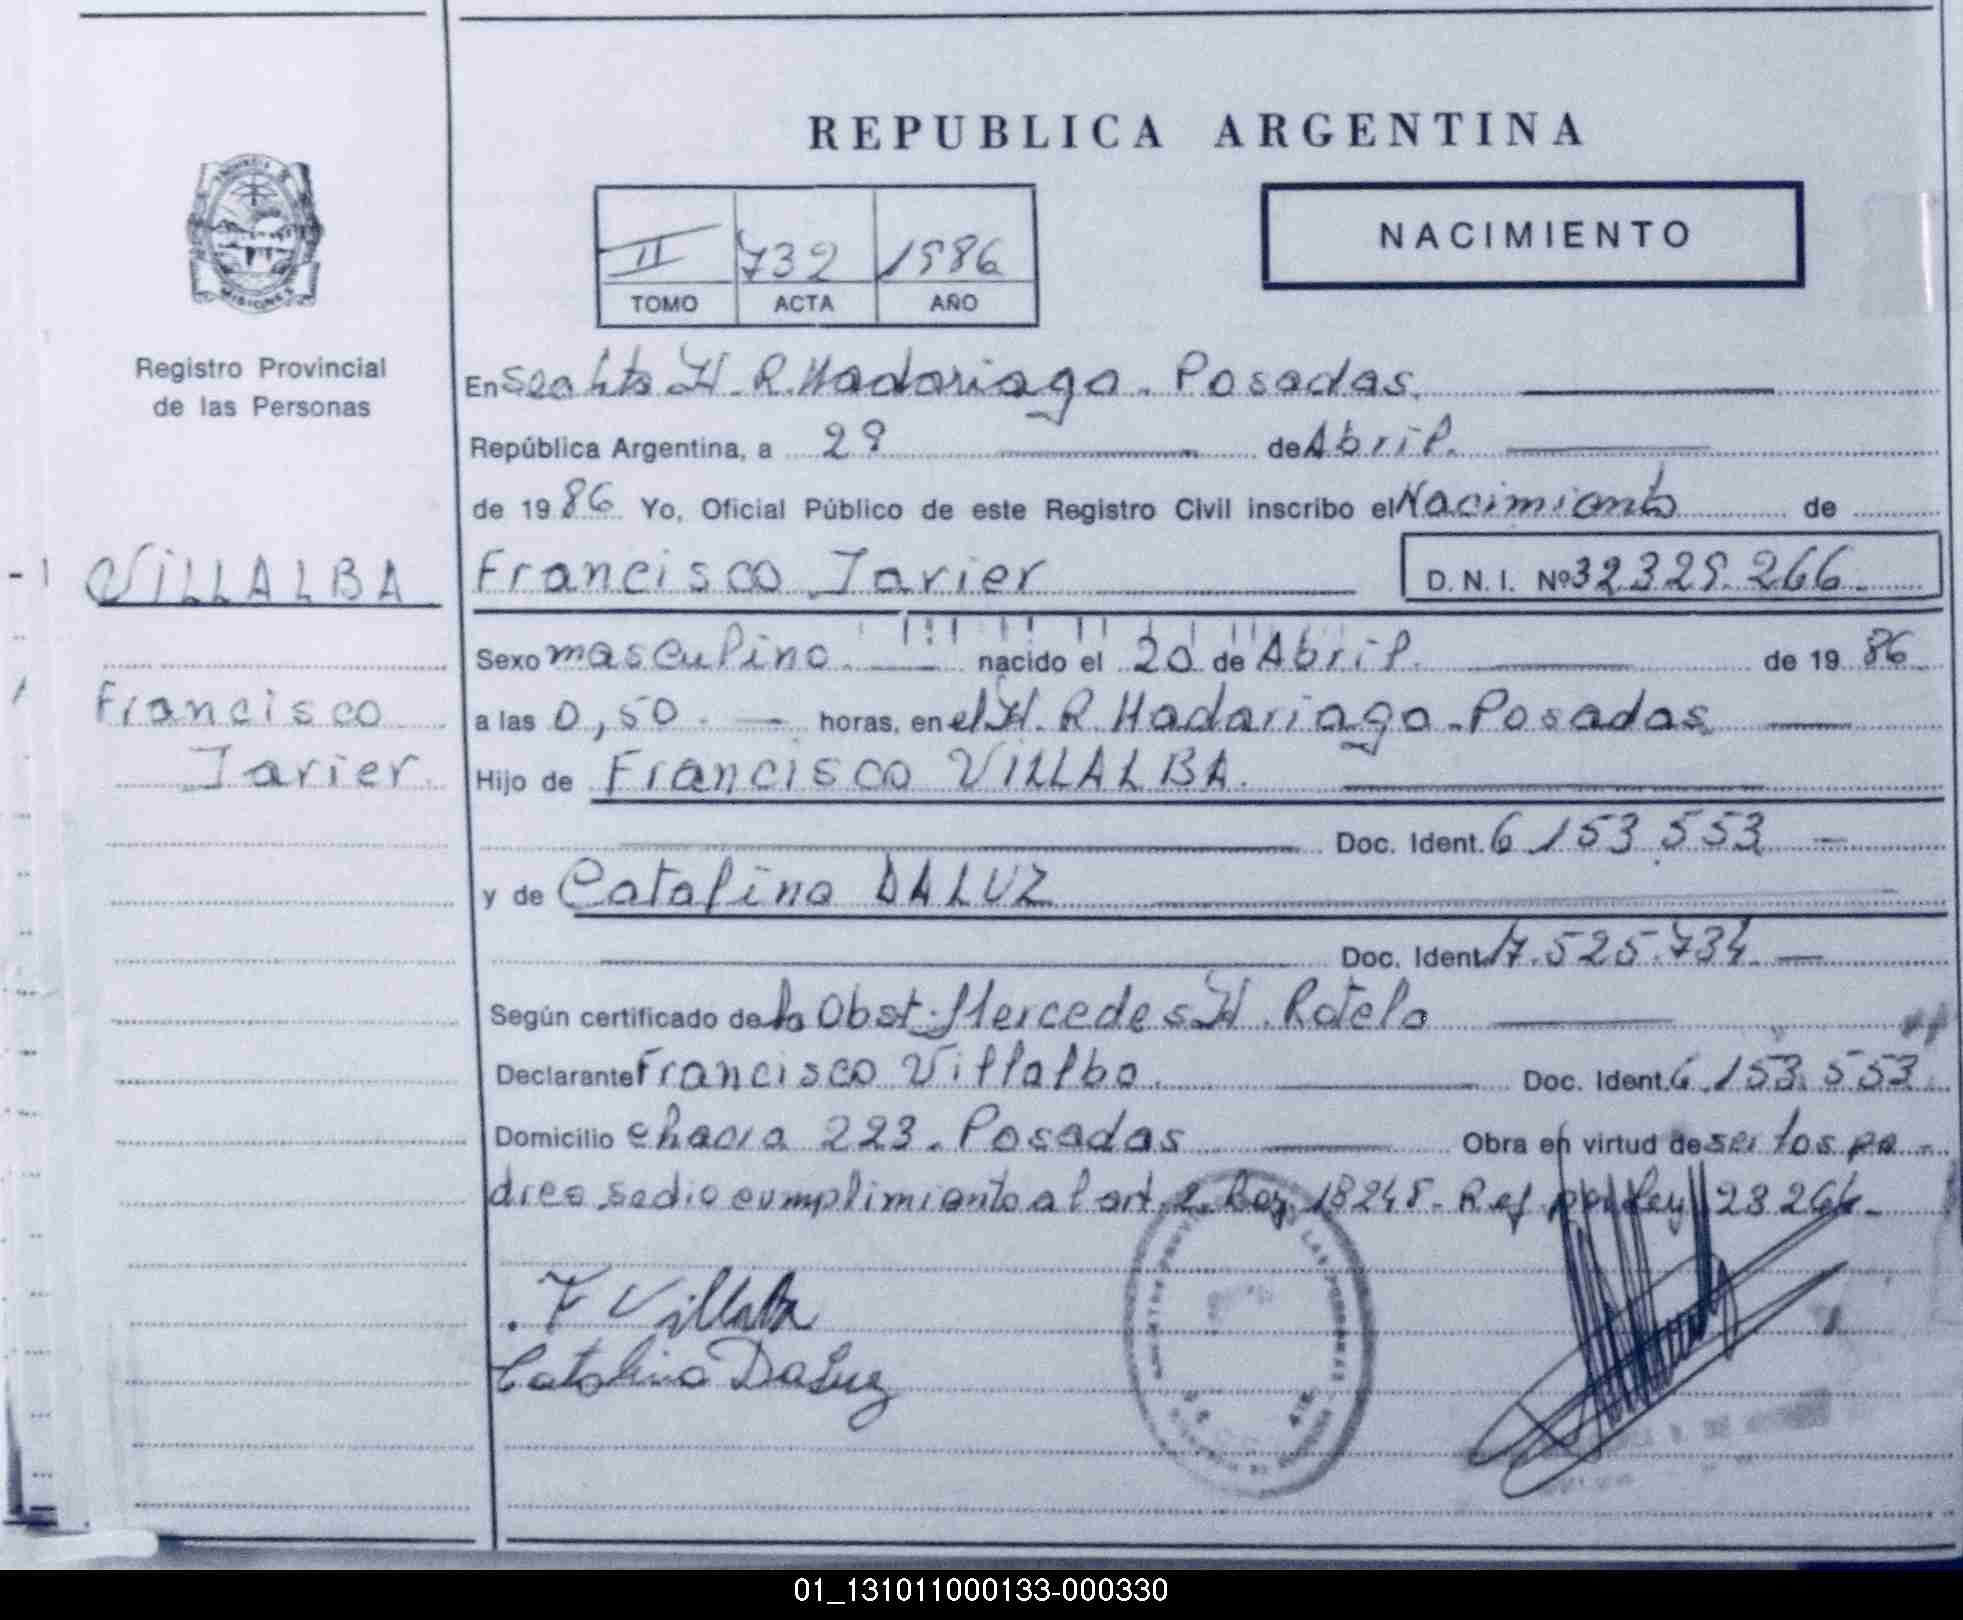 REPUBLICA ARGENTINA
NACIMIENTO
II 732 1986
TOMO ACTA AÑO
Registro Provincial
de las Personas
En Secc Hto H. R. Madariaga. Posadas.
República Argentina, a 29 de Abril.
de 1986 Yo, Oficial Público de este Registro Civil inscribo el Nacimiento de
VILLALBA
Francisco Javier D.N.I. Nº 32.329.266
Sexo masculino. nacido el 20 de Abril. de 1986
Francisco
Javier.
a las 0,50. horas, en el H. R. Madariaga - Posadas
Hijo de Francisco VILLALBA.
Doc. Ident. 6.153.553
y de Catalina DALUZ
Doc. Ident. 17.525.734
Según certificado de la Obst. Mercedes H. Rotela
Declarante Francisco Villalba. Doc. Ident. 6.153.553
Domicilio chacra 223. Posadas Obra en virtud de ser los pa-
dres se dio cumplimiento al art. 2. Ley 18248. Ref. por Ley 23264-
F Villalba
Catalina DaLuz
01_131011000133-000330